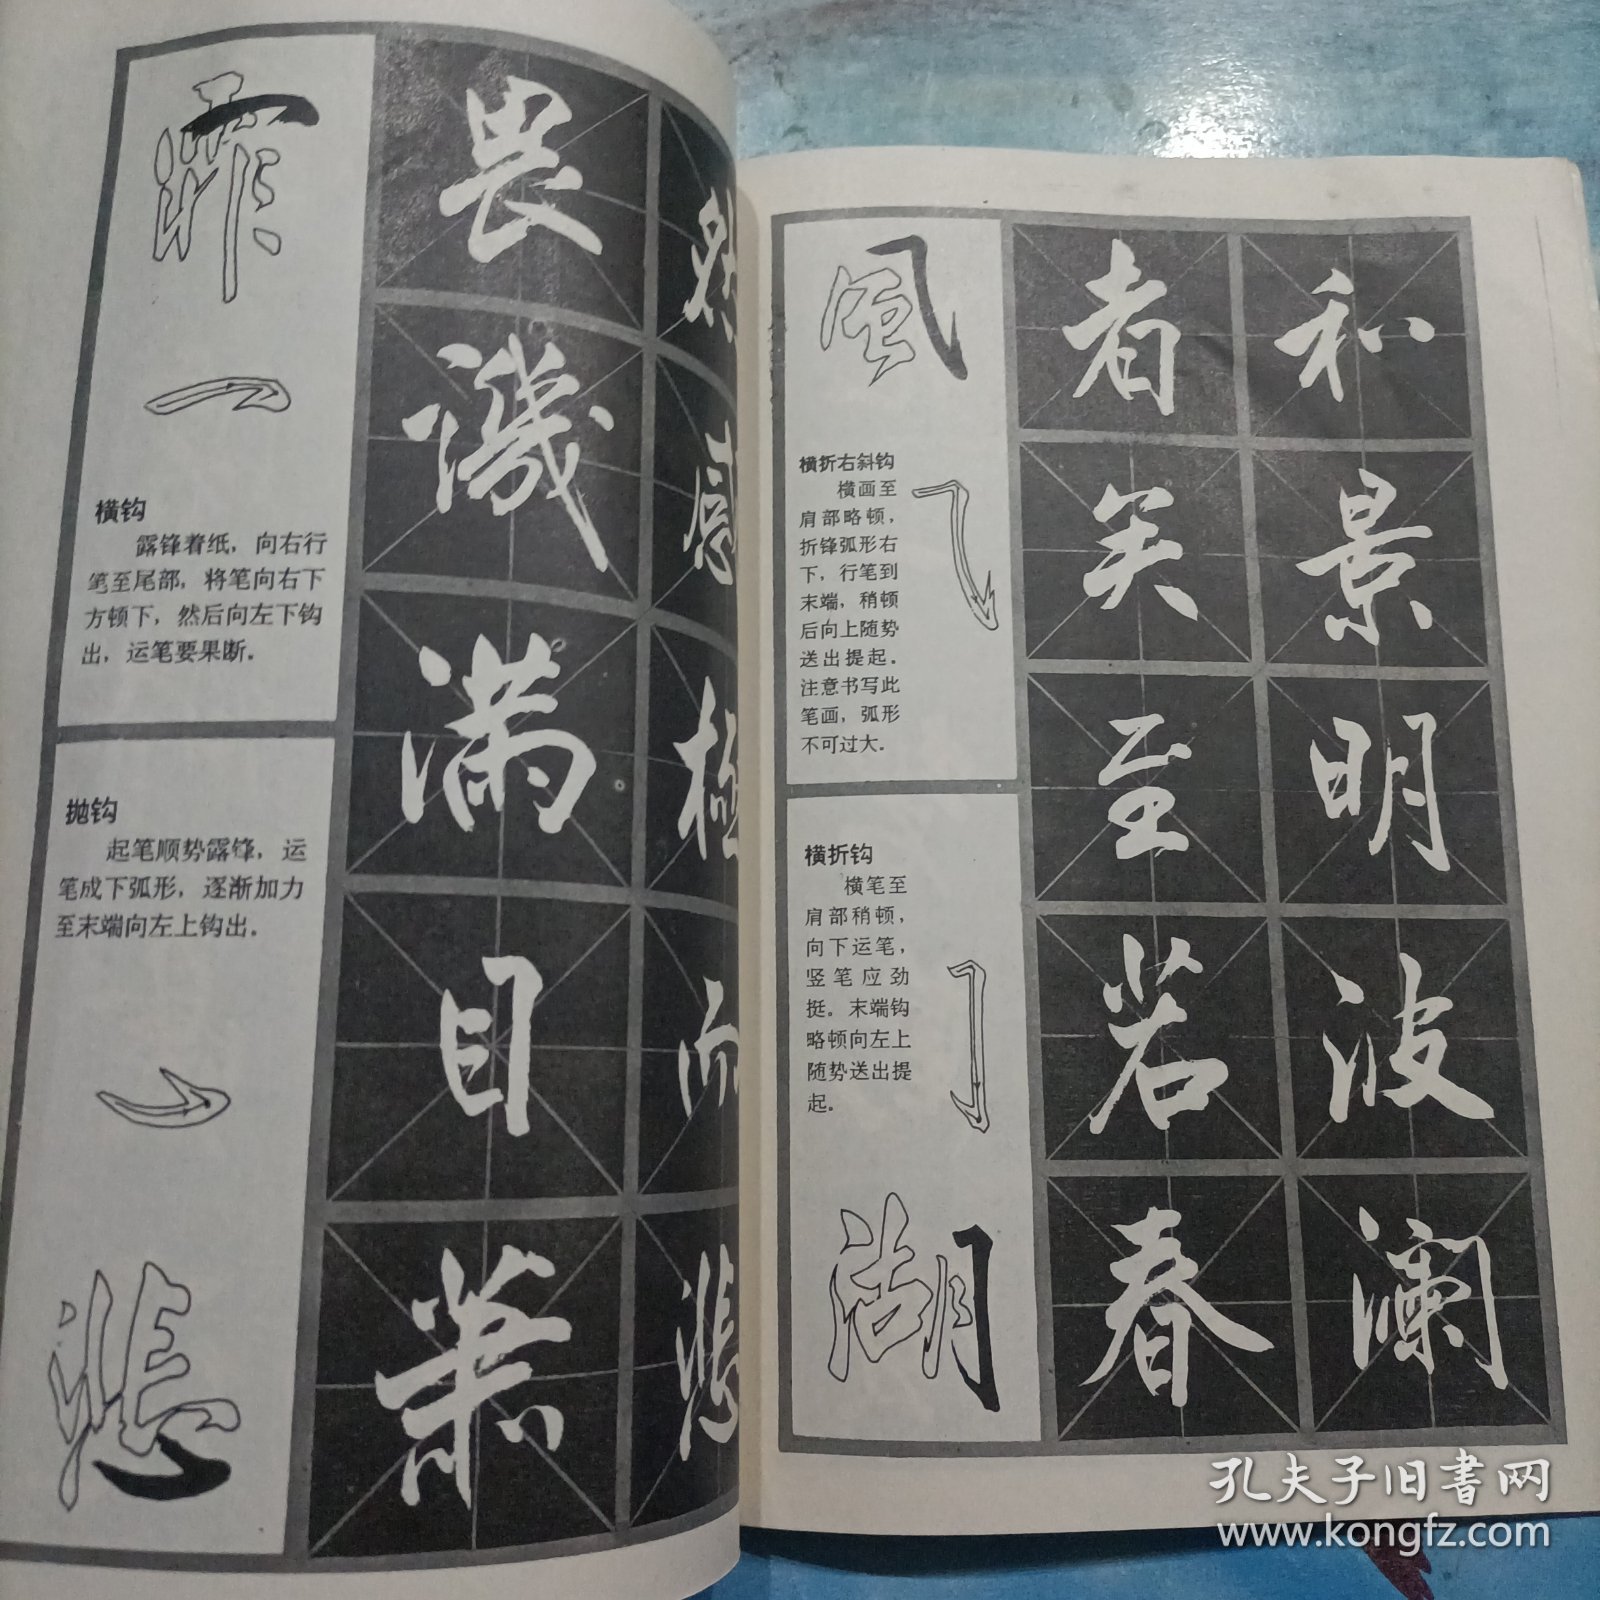 霏
横钩
露锋着纸，向右行
笔至尾部，将笔向右下
方顿下，然后向左下钩
出，运笔要果断。
抛钩
起笔顺势露锋，运
笔成下弧形，逐渐加力
至末端向左上钩出。
悲
畏
譏
满
目
蕭
然
感
極
而
悲
風
横折右斜钩
横画至
肩部略顿，
折锋弧形右
下，行笔到
末端，稍顿
后向上随势
送出提起。
注意书写此
笔画，弧形
不可过大。
横折钩
横笔至
肩部稍顿，
向下运笔，
竖笔应劲
挺。末端钩
略顿向左上
随势送出提
起。
湖
者
矣
至
若
春
和
景
明
波
瀾
孔夫子旧书网
www.kongfz.com